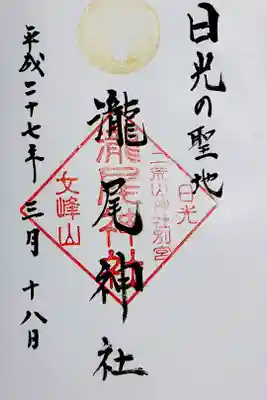 日光の聖地
日光
二荒山神社別宮
瀧尾神社
瀧尾神社
女峰山
平成二十七年 三月 十八日